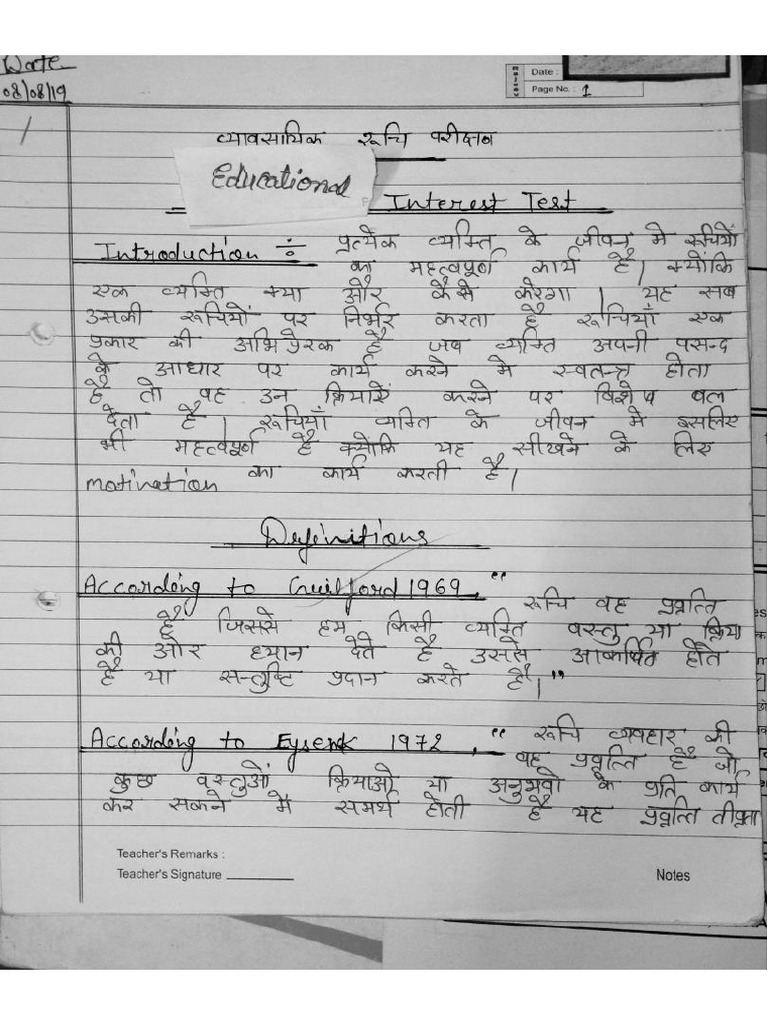 Date
08/08/19
Date :
Page No. : 1
व्यावसायिक रूचि परीक्षन
Educational
Interest Test
Introduction ÷ प्रत्येक व्यक्ति के जीवन मे रूचियों
का महत्वपूर्ण कार्य है। क्योंकि
एक व्यक्ति क्या और कैसे करेगा। यह सब
उसकी रूचियों पर निर्भर करता है रूचियाँ एक
प्रकार की अभिप्रेरक है जब व्यक्ति अपनी पसन्द
के आधार पर कार्य करने मे स्वतन्त्र होता
है तो वह उन क्रियाऐं करने पर विशेष बल
देता है। रूचियाँ व्यक्ति के जीवन मे इसलिए
भी महत्वपूर्ण है क्योकि यह सीखने के लिए
motivation का कार्य करती है।
Definitions
According to Guilford 1969, " रूचि वह प्रवृत्ति
है जिससे हम किसी व्यक्ति वस्तु या क्रिया
की ओर ध्यान देते है उससे आकर्षित होते
है या सन्तुष्टि प्रदान करते है।"
According to Eysenck 1972, " रूचि व्यवहार की
वह प्रवृत्ति है जो
कुछ वस्तुओं क्रियाओ या अनुभवो के प्रति कार्य
कर सकने मे समर्थ होती है यह प्रवृत्ति तीव्रता
Teacher's Remarks :
Teacher's Signature
Notes